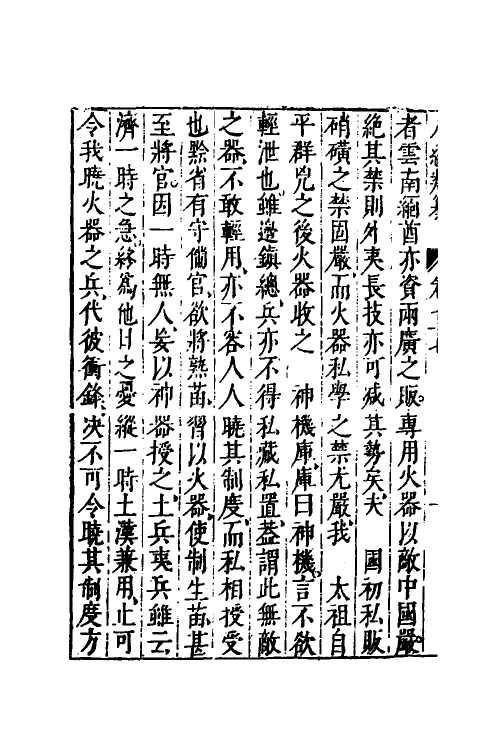 者雲南緬酋亦資兩廣之販專用火器以敵中國嚴
絕其禁則外夷長技亦可减其勢矣夫　國初私販
硝磺之禁固嚴而火器私學之禁尤嚴我　太祖自
平群兇之後火器收之　神機庫庫曰神機言不欲
輕泄也雖邊鎮總兵亦不得私藏私置葢謂此無敵
之器不敢輕用亦不容人人曉其制度而私相授受
也黔省有守備官欲將熟苗習以火器使制生苗甚
至將官因一時無人妄以神器授之土兵夷兵雖云
濟一時之急終爲他日之憂縱一時土漢兼用止可
令我曉火器之兵代彼衝鋒決不可令曉其制度方